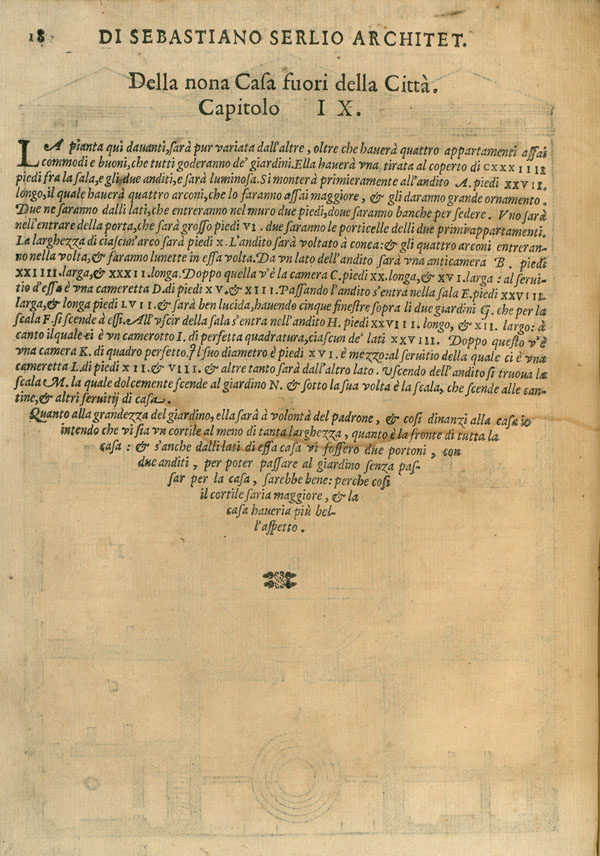 18 DI SEBASTIANO SERLIO ARCHITET.
Della nona Caſa fuori della Città.
Capitolo I X.
LA pianta qui dauanti, ſarà pur variata dall'altre, oltre che hauerà quattro appartamenti aſſai
commodi e buoni, che tutti goderanno de' giardini. Ella hauerà vna tirata al coperto di CXXXIIII
piedi fra la ſala, e gli due anditi, e ſarà luminoſa. Si monterà primieramente all'andito A. piedi XXVII.
longo, il quale hauerà quattro arconi, che lo faranno aſſai maggiore, & gli daranno grande ornamento.
Due ne ſaranno dalli lati, che entreranno nel muro due piedi, doue ſaranno banche per ſedere. Vno ſarà
nell'entrare della porta, che ſarà groſſo piedi VI. due ſaranno le porticelle delli due primi appartamenti.
La larghezza di ciaſcun'arco ſarà piedi X. L'andito ſarà voltato à conca: & gli quattro arconi entreran-
no nella volta, & faranno lunette in eſſa volta. Da vn lato dell'andito ſarà vna anticamera B. piedi
XXIIII. larga, & XXXII. longa. Doppo quella v'è la camera C. piedi XX. longa, & XVI. larga: al ſerui-
tio d'eſſa è vna cameretta D. di piedi XV. & XIIII. Paſſando l'andito s'entra nella ſala E. piedi XXVIII.
larga, & longa piedi LVII. & ſarà ben lucida, hauendo cinque fineſtre ſopra li due giardini G. che per la
ſcala F. ſi ſcende à eſſi. All'vſcir della ſala s'entra nell'andito H. piedi XXVIII. longo, & XII. largo: à
canto il quale ci è vn camerotto I. di perfetta quadratura, ciaſcun de' lati XXVIII. Doppo queſto v'è
vna camera K. di quadro perfetto. Il ſuo diametro è piedi XVI. e mezzo: al ſeruitio della quale ci è vna
cameretta L. di piedi XII. & VIII. & altre tanto ſarà dall'altro lato. Vſcendo dell'andito ſi truoua la
ſcala M. la quale dolcemente ſcende al giardino N. & ſotto la ſua volta è la ſcala, che ſcende alle can-
tine, & altri ſeruitij di caſa.
Quanto alla grandezza del giardino, ella ſarà à volontà del padrone, & coſi dinanzi alla caſa io
intendo che vi ſia vn cortile al meno di tanta larghezza, quanto è la fronte di tutta la
caſa: & s'anche dalli lati di eſſa caſa vi foſſero due portoni, con
due anditi, per poter paſſare al giardino ſenza paſ-
ſar per la caſa, ſarebbe bene: perche coſi
il cortile ſaria maggiore, & la
caſa haueria più bel-
l'aſpetto.